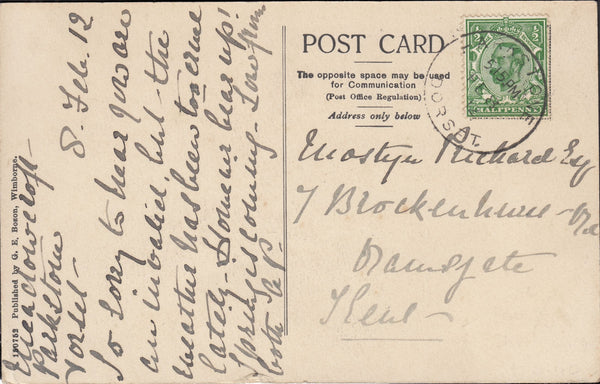 190752 Published by G. E. Boson, Wimborne.
Meadowcroft
Parkstone
Dorset
8. Feb. 12
So sorry to hear you are
an invalid, but the
weather has been too cruel
lately. However bear up!
Spring is coming. Love from
both
POST CARD
The opposite space may be used
for Communication
(Post Office Regulation)
Address only below
HALFPENNY
DORSET.
Mostyn Richard Esq
7 Brockenhurst Rd
Ramsgate
Kent